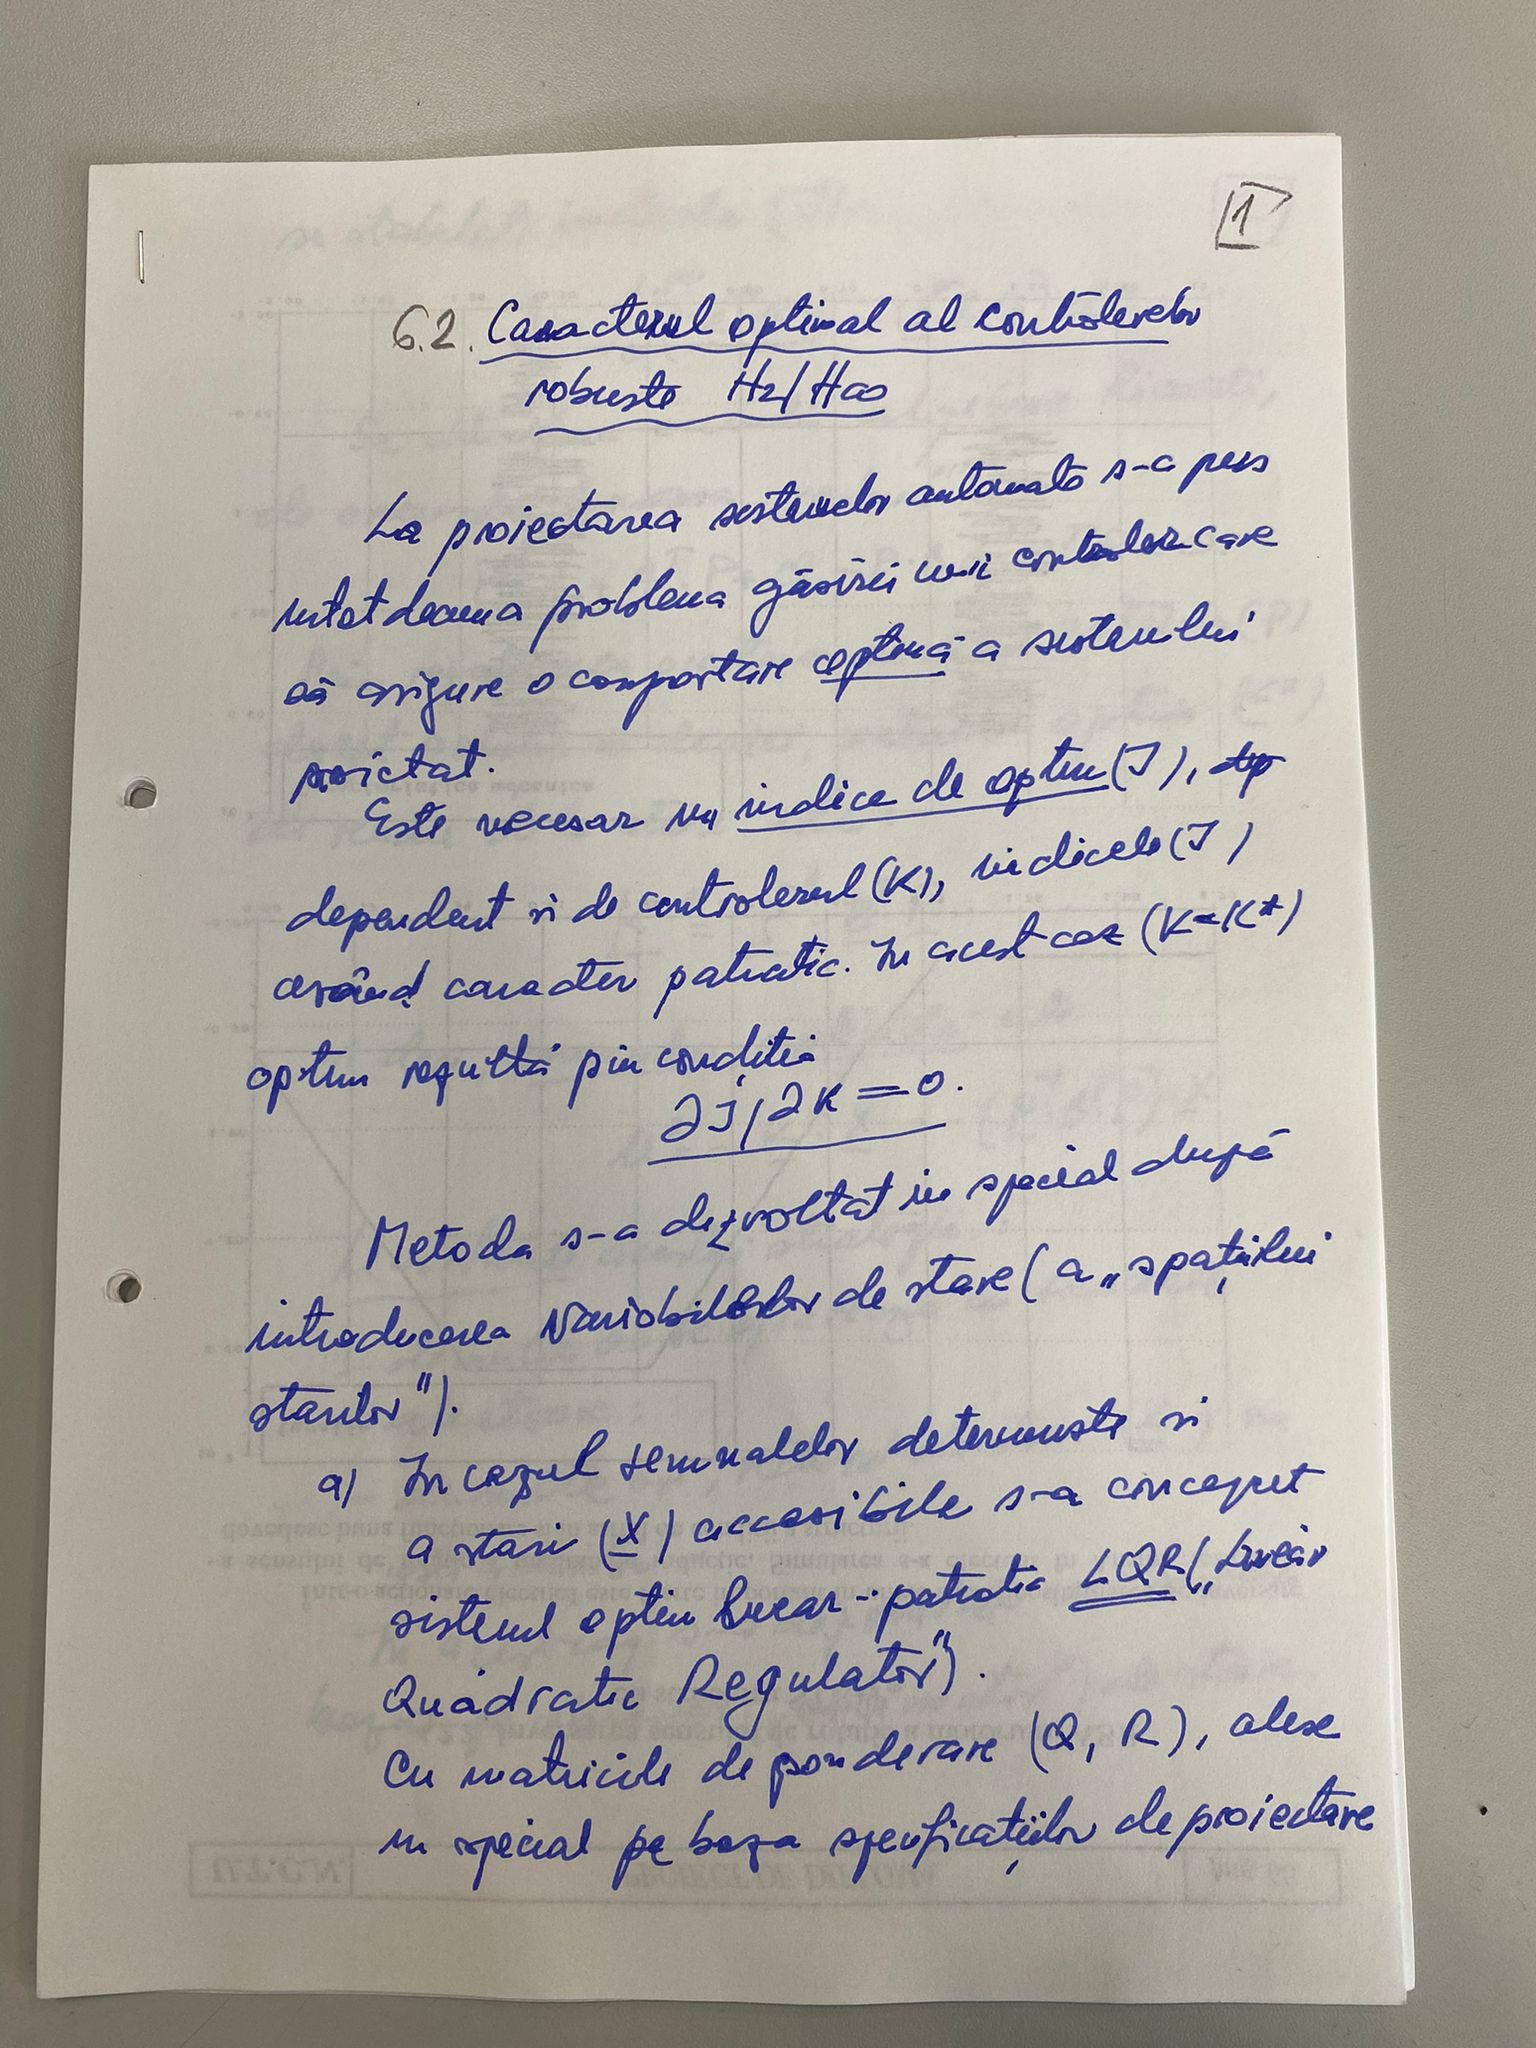 1
6.2. Caracterul optimal al controlerelor
robuste H2/H∞
La proiectarea sistemelor automate s-a pus
întotdeauna problema găsirii unui controler care
să asigure o comportare optimă a sistemului
proiectat.
Este necesar un indice de optim (J),
dependent și de controlerul (K), indicele (J)
având caracter patratic. In acest caz (K=K*)
optim rezultă prin condiția
∂J/∂K = 0.
Metoda s-a dezvoltat in special după
introducerea variabilelor de stare (a „spațiului
starilor").
a) In cazul semnalelor deterministe si
a stari (X) accesibile s-a conceput
sistemul optim liniar-patratic LQR („Linear
Quadratic Regulator").
Cu matricile de ponderare (Q, R), alese
in special pe baza specificațiilor de proiectare